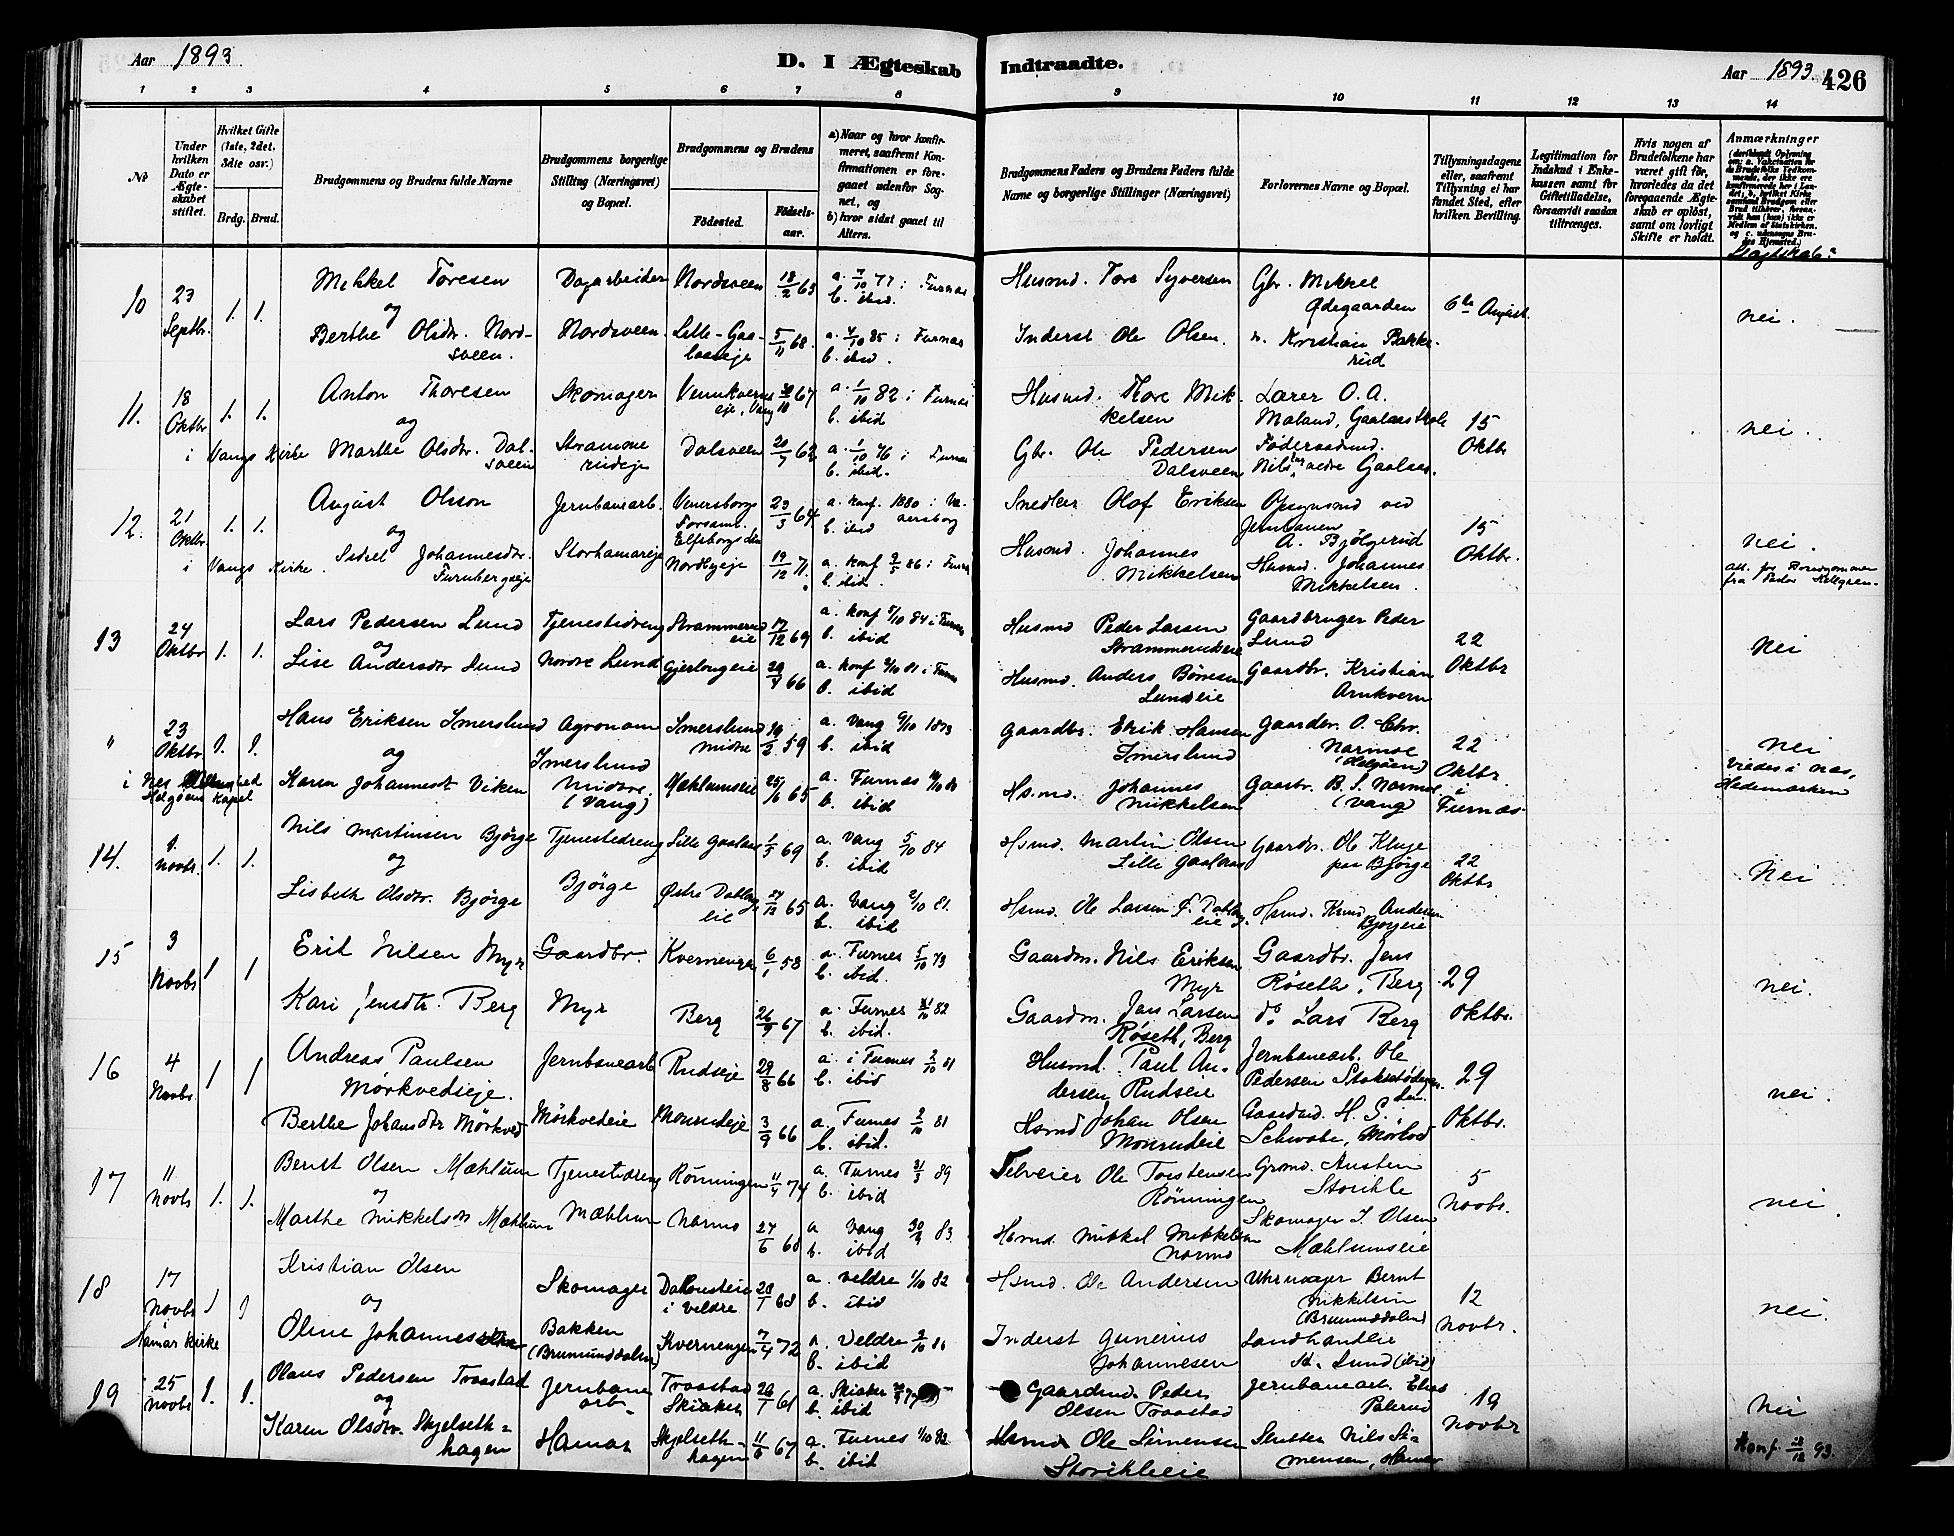 Aar 1893.
D. I Ægteskab Indtraadte.
Aar 1893.
426
1 2 3 4 5 6 7 8 9 10 11 12 13 14
No
Under hvilken Dato er Ægteskabet stiftet.
Hvilket Gifte (1ste, 2det, 3dte osv.)
Brdg. Brud.
Brudgommens og Brudens fulde Navne
Brudgommens borgerlige Stilling (Næringsvei) og Bopæl.
Brudgommens og Brudens
Födested.
Födselsaar.
a) Naar og hvor konfirmeret, saafremt Konfirmationen er foregaaet udenfor Sognet, og
b) hvor sidst gaaet til Alters.
Brudgommens Faders og Brudens Faders fulde Navne og borgerlige Stillinger (Næringsvei)
Forlovernes Navne og Bopæl.
Tillysningsdagene eller, saafremt Tillysning ei har fundet Sted, efter hvilken Bevilling.
Legitimation for Indskud i Enkekassen samt for Giftetilladelse, forsaavidt saadan tiltrænges.
Hvis nogen af Brudefolkene har været gift för, hvorledes da det foregaaende Ægteskab er oplöst, samt om lovligt Skifte er holdt.
Anmærkninger
Slagtskab?
10 23 Septbr. 1. 1. Mikkel Toresen Dagarbeider Nordsveen 18/2 63 a. 7/10 77 i Furnes b. ibid. Husmd. Tore Syversen Gbr. Mikkel Ødegaarden 6te August nei.
og
Berthe Olsdr. Nordsveen. Nordsveen. Lille-Gaalaaseje 5/11 68. a. 4/10 85 i Furnes b. ibid. Inderst Ole Olsen. n. Kristian Bakkerud
11. 18 Oktbr 1. 1. Anton Thoresen Skomager eje, Vang 67 a. 1/10 82 i Furnes b. ibid Husmd. Thore Mikkelsen Lærer O. A. Maland, Gaalaas Skole 15 Oktbr nei.
og
i Vangs Kirke Marthe Olsdr. Dalsveen Strammerudeje Dalsveen 20/7 62 a. 1/10 76 i Furnes b. ibid. Gbr. Ole Pedersen Dalsveen Föderaadsmd. Nils nedre Gaalaas.
12. 21 Oktbr. 1. 1. August Olsson Jernbanearb. Venersborgs Forsaml. Elfsborgs län 23/3 64 a. konf. 1880 i Venersborg b. ibid Snedker Olof Eriksen Opsynsmd ved Jernbanen A. Bjölgerud 15 Oktbr. nei.
og
i Vangs Kirke. Sidsel Johannesdr. Furubergseje Storhamareje Nordbyeje 19/12 71. a. konf 2/5 86 i Furnes b. ibid. Husmd. Johannes Mikkelsen Husmd. Johannes Mikkelsen. att. for Brudgommen fra Pastor Kellgren.
13 24 Oktbr 1. 1. Lars Pedersen Lund Tjenestedreng Strammerudeie 17/12 69 a. konf 5/10 84 i Furnes b. ibid Husmd Peder Larsen Strammerudeie Gaardbruger Peder Lund 22 Oktbr Nei
og
Lise Andersdtr Lund Nordre Lund Gjerlougeie 66 a. konf 2/10 81 i Furnes b. ibid Husmd. Anders Börresen Lundeie Gaardbr. Kristian Arnkvern
" 23 Oktbr 1. 1. Hans Eriksen Imerslund Agronom Imerslund midtre 59 a. Vang 1873 b. ibid Gaardbr. Erik Hansen Imerslund Gaardbr. O. Chr. Narmoe (Helgöen) 22 Oktbr i Furnes Nei
og
i Nes Helgöens Kapel Karen Johannesdt Viken Imerslund Midtre (Vang) Mæhlumseie 25/6 65 a. Furnes b. ibid Hsmd. Johannes Mikkelsen Gaardbr. B. I. Narmoe (Vang) Viedes i Nes, Hedemarken
14. 1. Novbr. 1. 1. Nils Martinsen Bjørge Tjenestedreng Lille Gaalaas 1/5 69 a. Vang 5/10 84 b. ibid Hsmd. Martin Olsen Lille Gaalaas Gaardbr. Ole Kluge paa Bjørge 22 Oktbr Nei
og
Lisbeth Olsdtr. Bjørge Bjørge Østre Dahlbyeie 24/12 65 a. Vang 2/10 81. b. ibid Hsmd. Ole Larsen Ø. Dahlbyeie Hsmd. Knud Andersen Bjørgeeie
15 3 Novbr 1 1 Erik Nilsen Myr Gaardbr. Kvernengen 6/1 58 a. Furnes 5/10 73 b. ibid. Gaardm. Nils Eriksen Myr Gaardbr. Jens Røseth, Berg 29 Oktbr. nei.
Kari Jensdtr. Berg Myr Berg 26/9 67 a. Furnes 82 b. ibid. Gaardm. Jens Larsen Røseth, Berg do Lars Berg
16 4 Novbr. 1 1 Andreas Paulsen Mørkvedseje. Jernbanearb Rudseje 29/8 66 a. i Furnes 2/10 81 b. ibid Husmd. Paul Andersen Rudseie Jernbanearb. Ole Pedersen 29 Oktbr. nei.
Berthe Johansdtr Mörkved Mörkvedeie Monsrudeje 3/9 66 a. Furnes 2/10 81 b. ibid. Hsmd Johan Olsen Monsrudeie Gaardmd. H. S. Schwabe, Mørkved
17 11 Novbr 1. 1. Bernt Olsen Mæhlum Tjenestedreng Rönningen 11/4 74 a. Furnes 31/3 89 b. ibid Selveier Ole Torstensen Rönningen Grmd. Austen Storihle 5 Novbr. nei.
og
Marthe Mikkelsdtr Mæhlum Mæhlum Narmo 24/6 68 a Vang 30/9 83. b. ibid Hsmd. Mikkel Mikkelsen Narmo Skomager I. Olsen Mæhlumseie
18 17 Novbr 1 1 Kristian Olsen Skomager i Veldre 28/1 68 a. Veldre 1/10 82 b. ibid Hsmd. Ole Andersen Uhrmager Bernt Mikkelsen (Brumunddalen) 12 Novbr. nei.
og
i Hamar Kirke Oline Johannesdtr Bakken (Brumunddalen) Kvernengen 7/4 72 a. Veldre b. ibid Inderst Gunerius Johannesen Landhandler M. Lund (ibid)
19 25 Novbr 1. 1. Olaus Pedersen Traastad Jernbanearb. Traastad Skiaker 26/1 61 a. Skiaker b. ibid Gaardmd. Peder Olsen Traastad Jernbanearb. Elias Palerud 19 Novbr Nei
og
Karen Olsdtr. Skjelsethhagen Hamar Skjelsethhagen 11/8 67 a. Furnes 1/10 82 b. ibid Hsmd Ole Simensen Storihleeie Slutter Nils Simensen, Hamar Konf. 93.